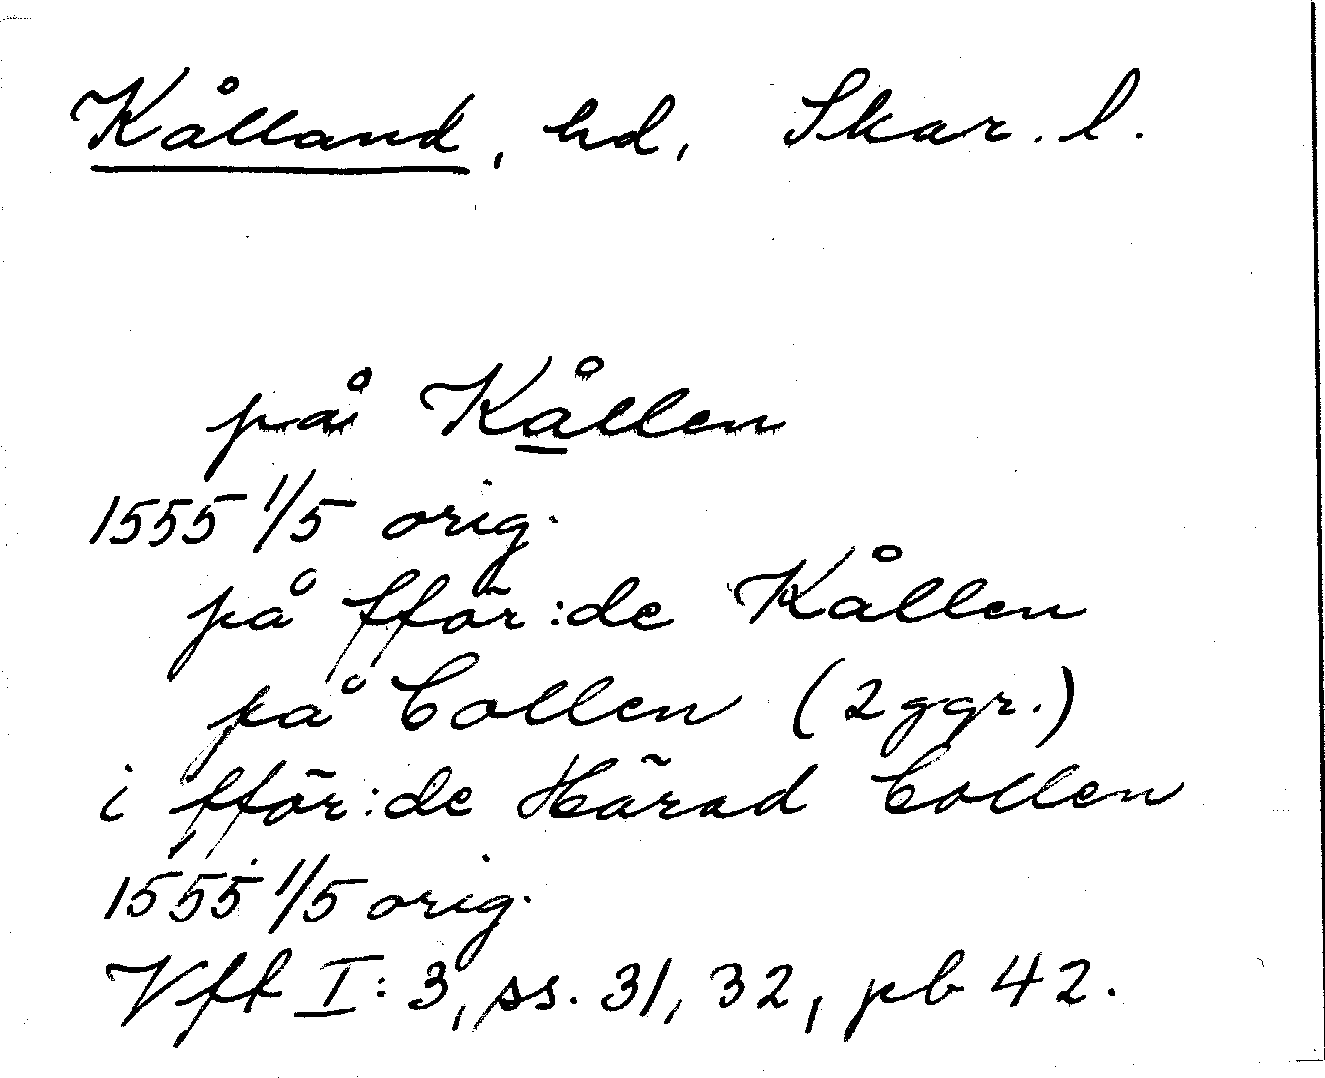 Kålland, hd, Skar. l.
på Kållen
1555 1/5 orig.
på fför:de Kållen
på Collen (2 ggr.)
i fför:de Härad Collen
1555 1/5 orig.
Vft I: 3, ss. 31, 32, pb 42.